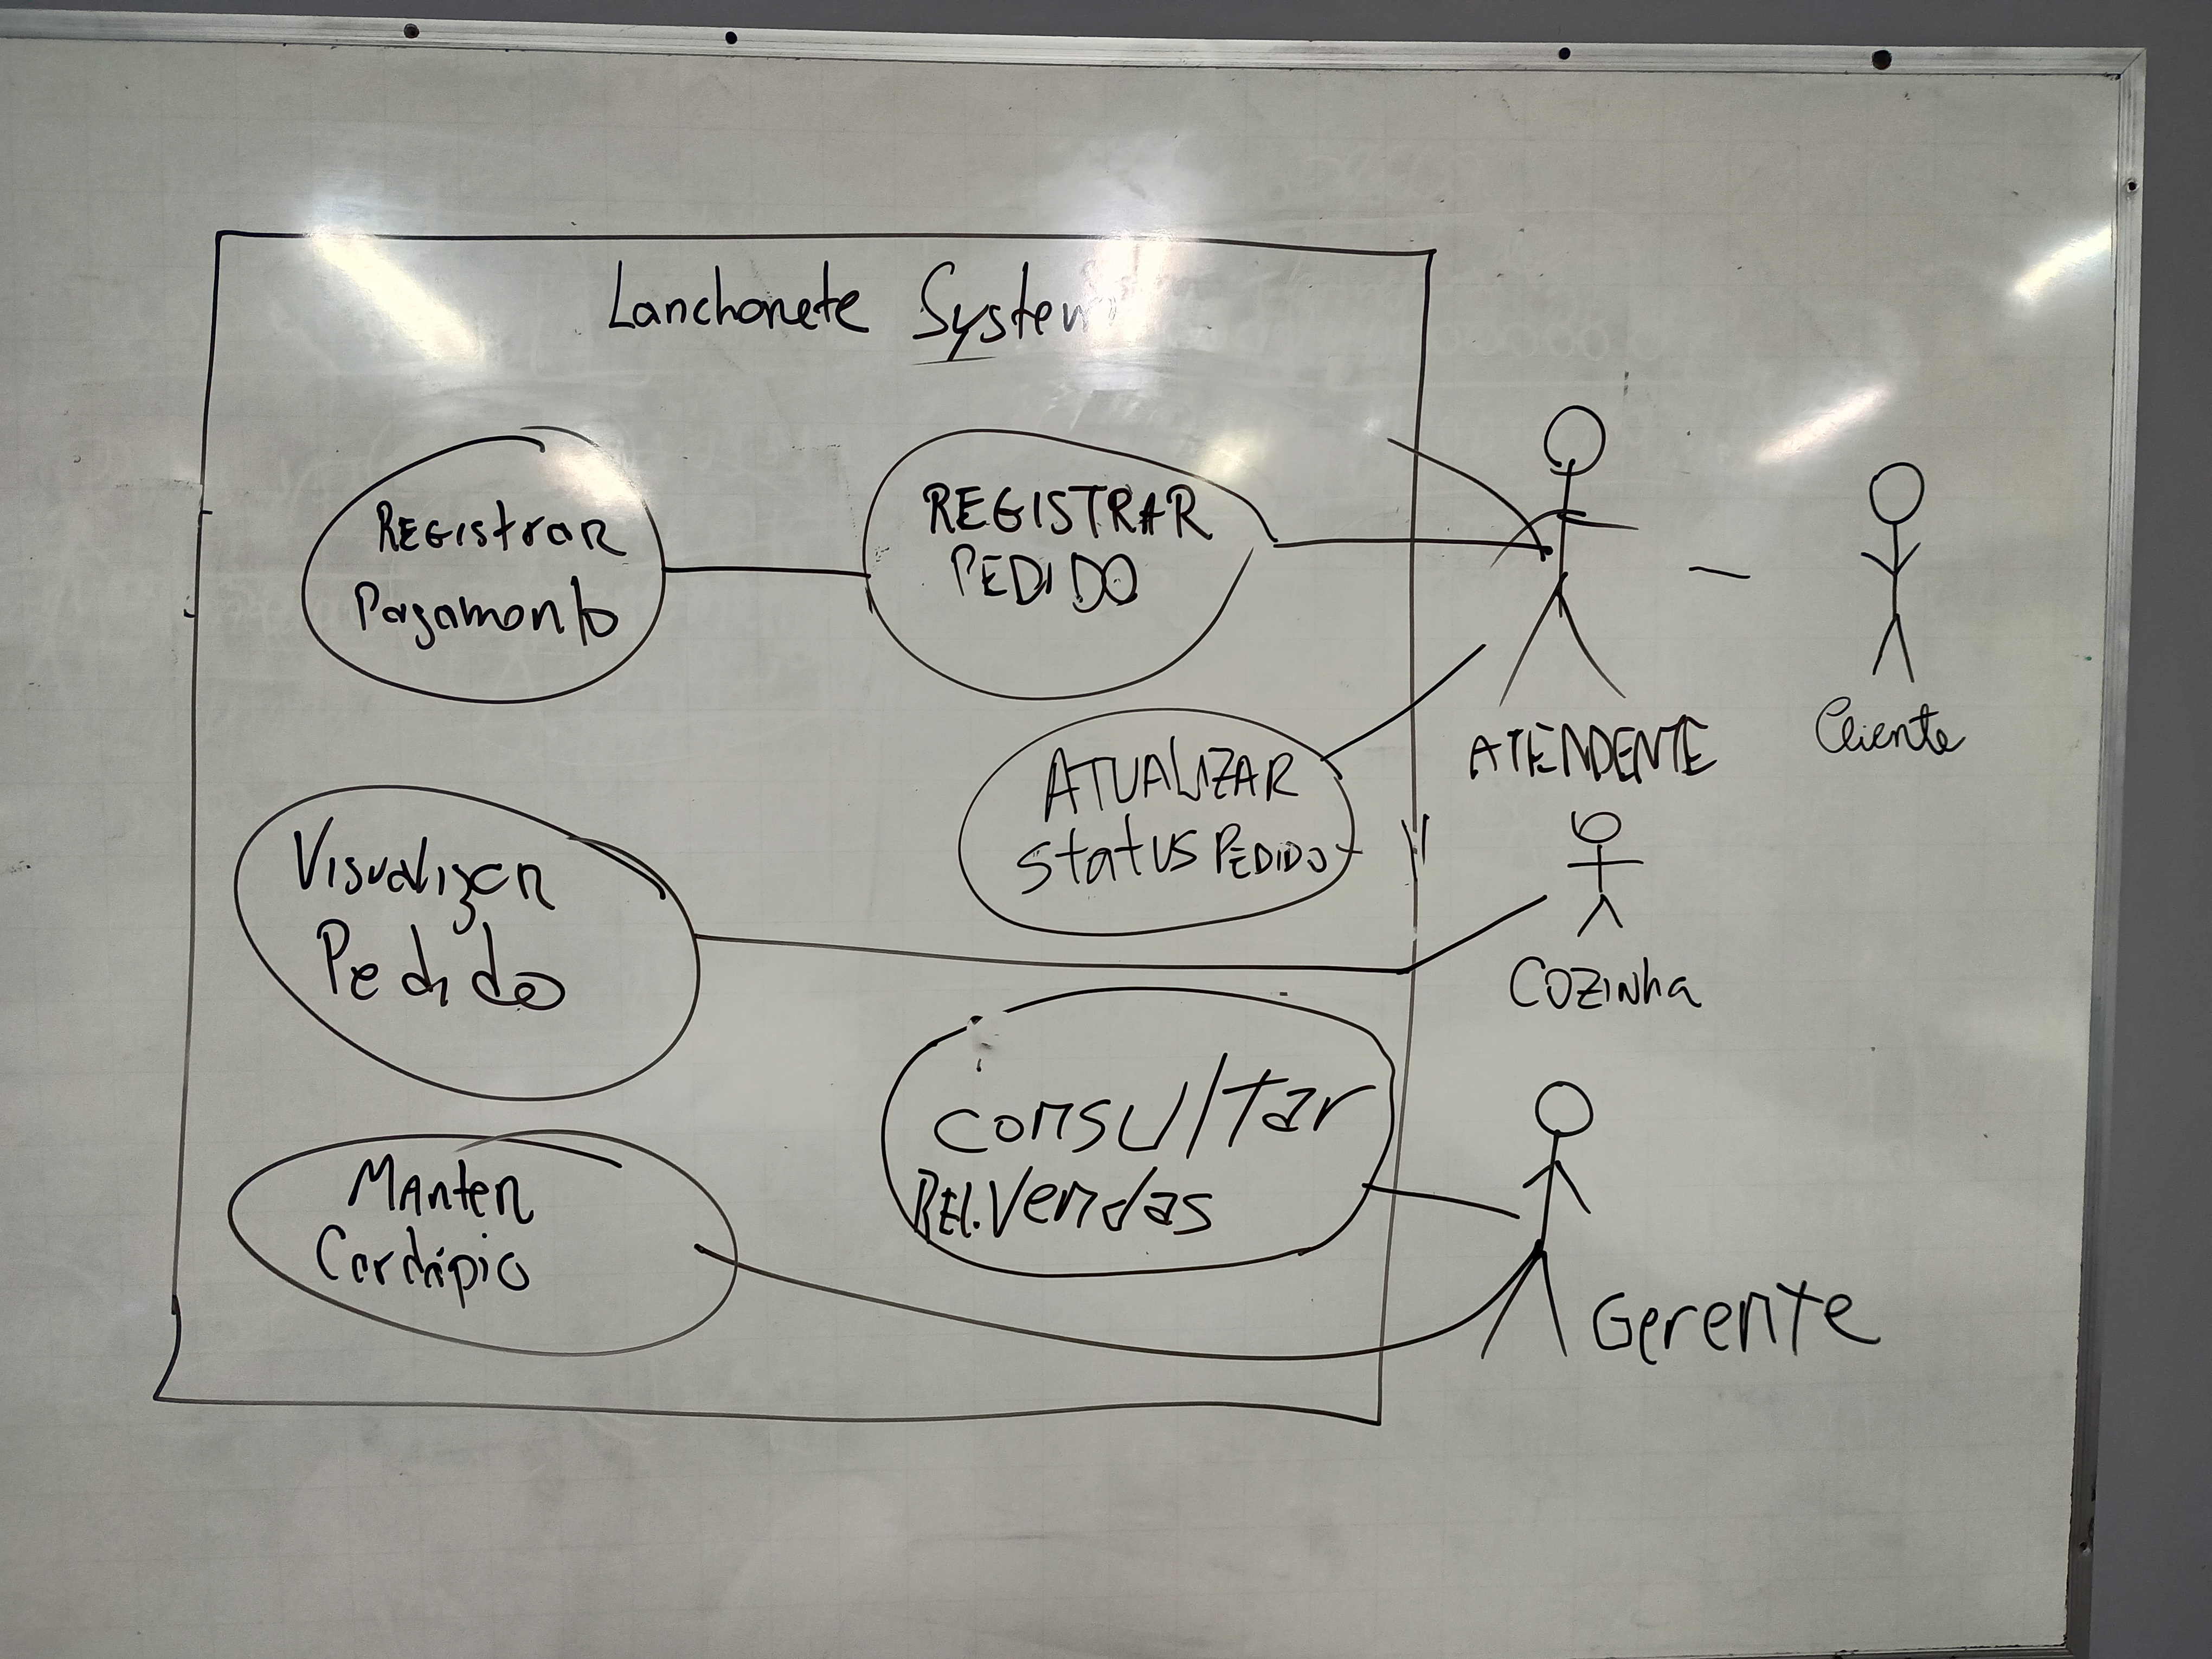 Lanchonete System
REGIstrar
Pagamento
REGISTRAR
PEDIDO
ATENDENTE
Cliente
ATUALIZAR
status PEDIDO
Visualizar
Pedido
COZINha
consultar
REL. Vendas
MAnter
Cardápio
Gerente